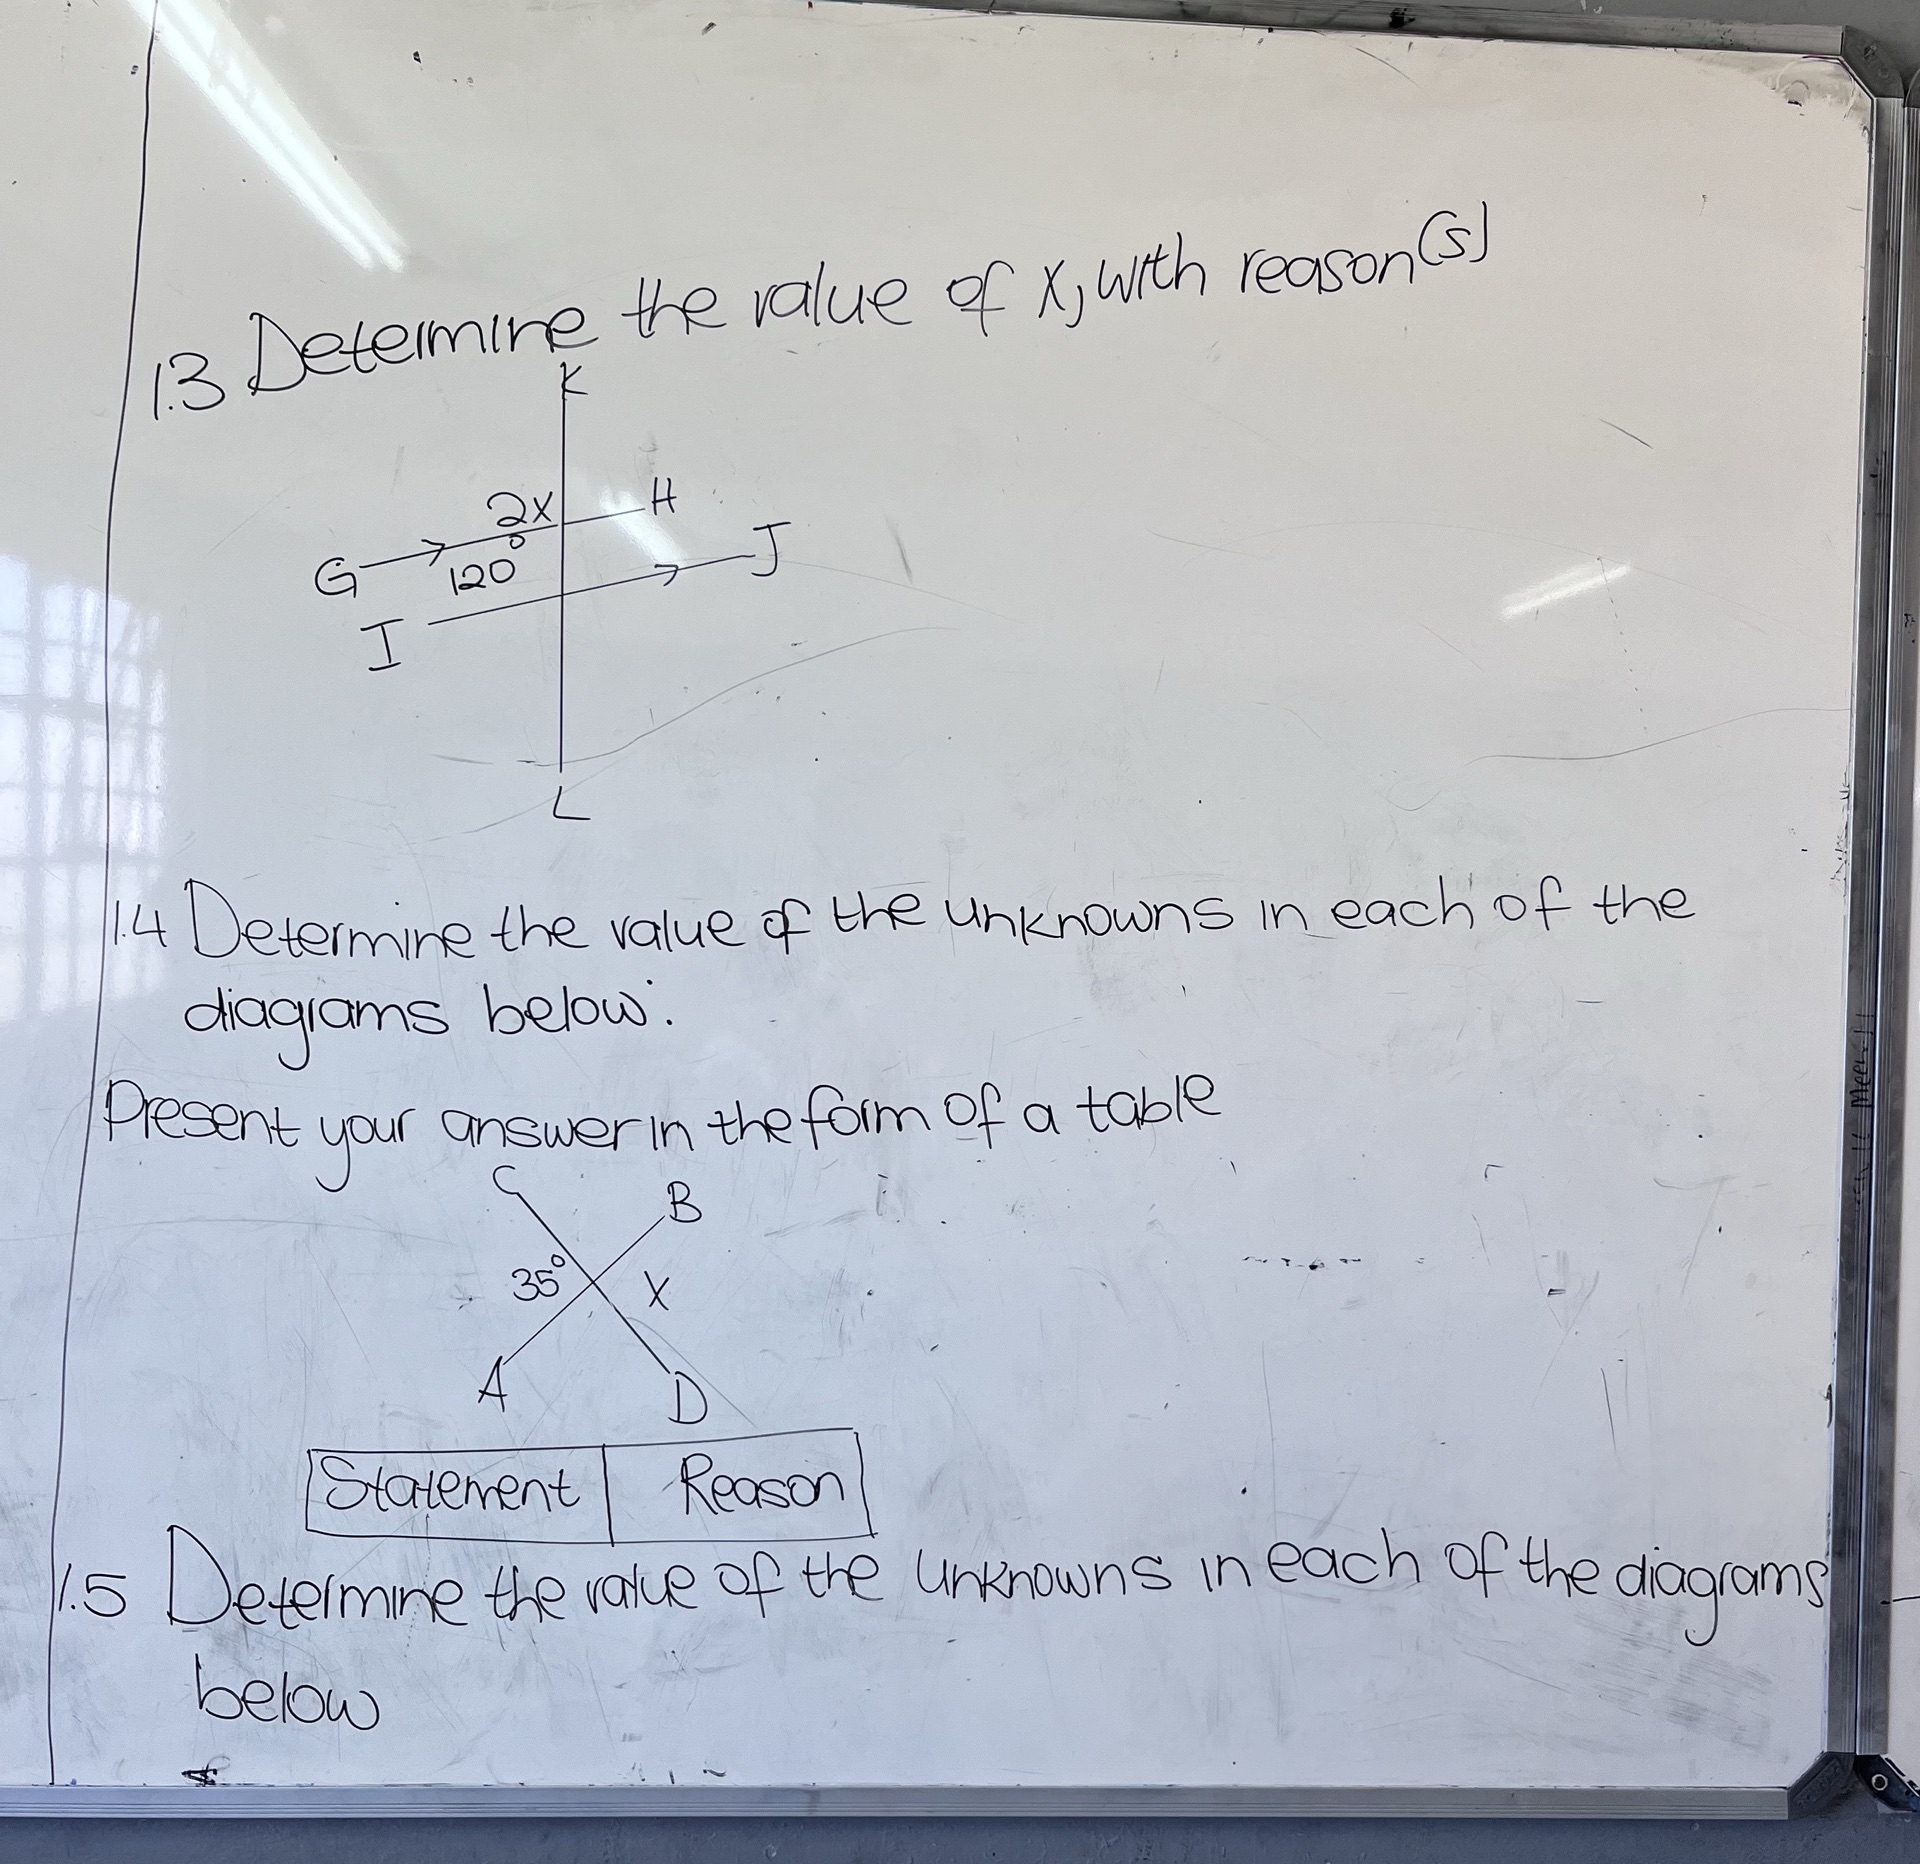 1.3 Determine the value of x, with reason(s)
K
2x
H
G
120°
J
I
L
1.4 Determine the value of the unknowns in each of the
diagrams below:
Present your answer in the form of a table
C
B
35°
x
A
D
Statement Reason
1.5 Determine the value of the unknowns in each of the diagrams
below